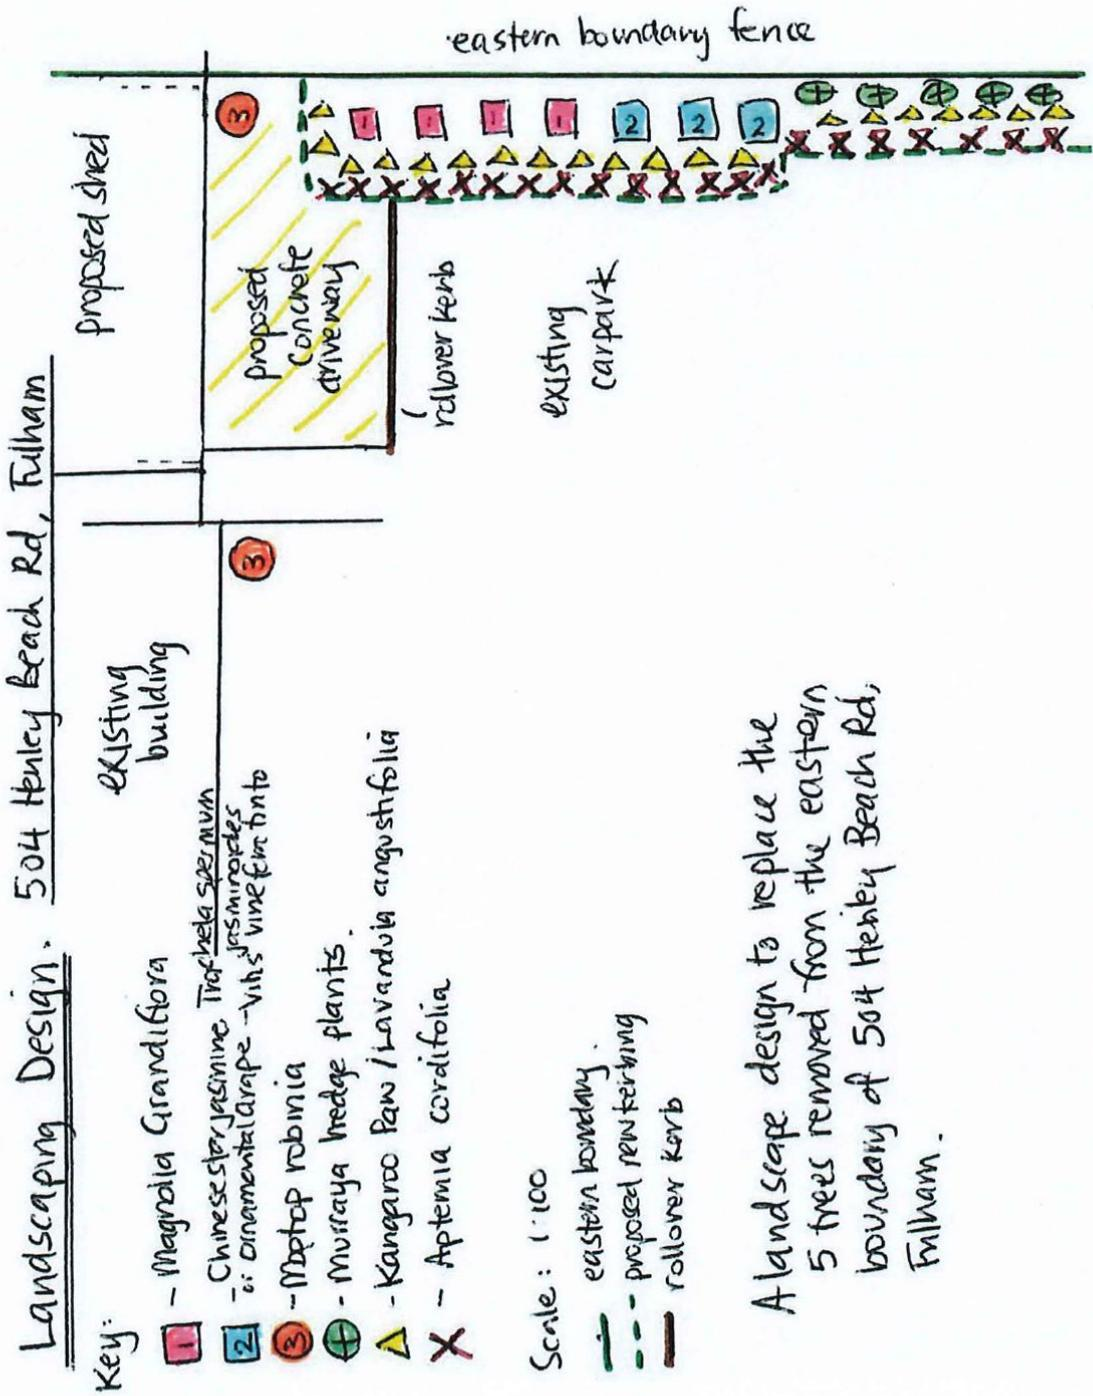 Landscaping Design. 504 Henley Beach Rd, Fulham
Key:
1 - Magnolia Grandiflora
2 - Chinese star jasmine Trachelaspermum jasminoides
or ornamental Grape - Vitis vinefera tinto
3 - Moptop robinia
+ - Murraya hedge plants.
- Kangaroo Paw / Lavandula angustifolia
X - Aptemia cordifolia
Scale: 1:100
eastern boundary.
proposed new kerbing
rollover kerb
A landscape design to replace the
5 trees removed from the eastern
boundary of 504 Henley Beach Rd,
Fulham.
existing
building
3
proposed shed
proposed
concrete
driveway
3
rollover kerb
existing
carpark
eastern boundary fence
1
1
1
1
2
2
2